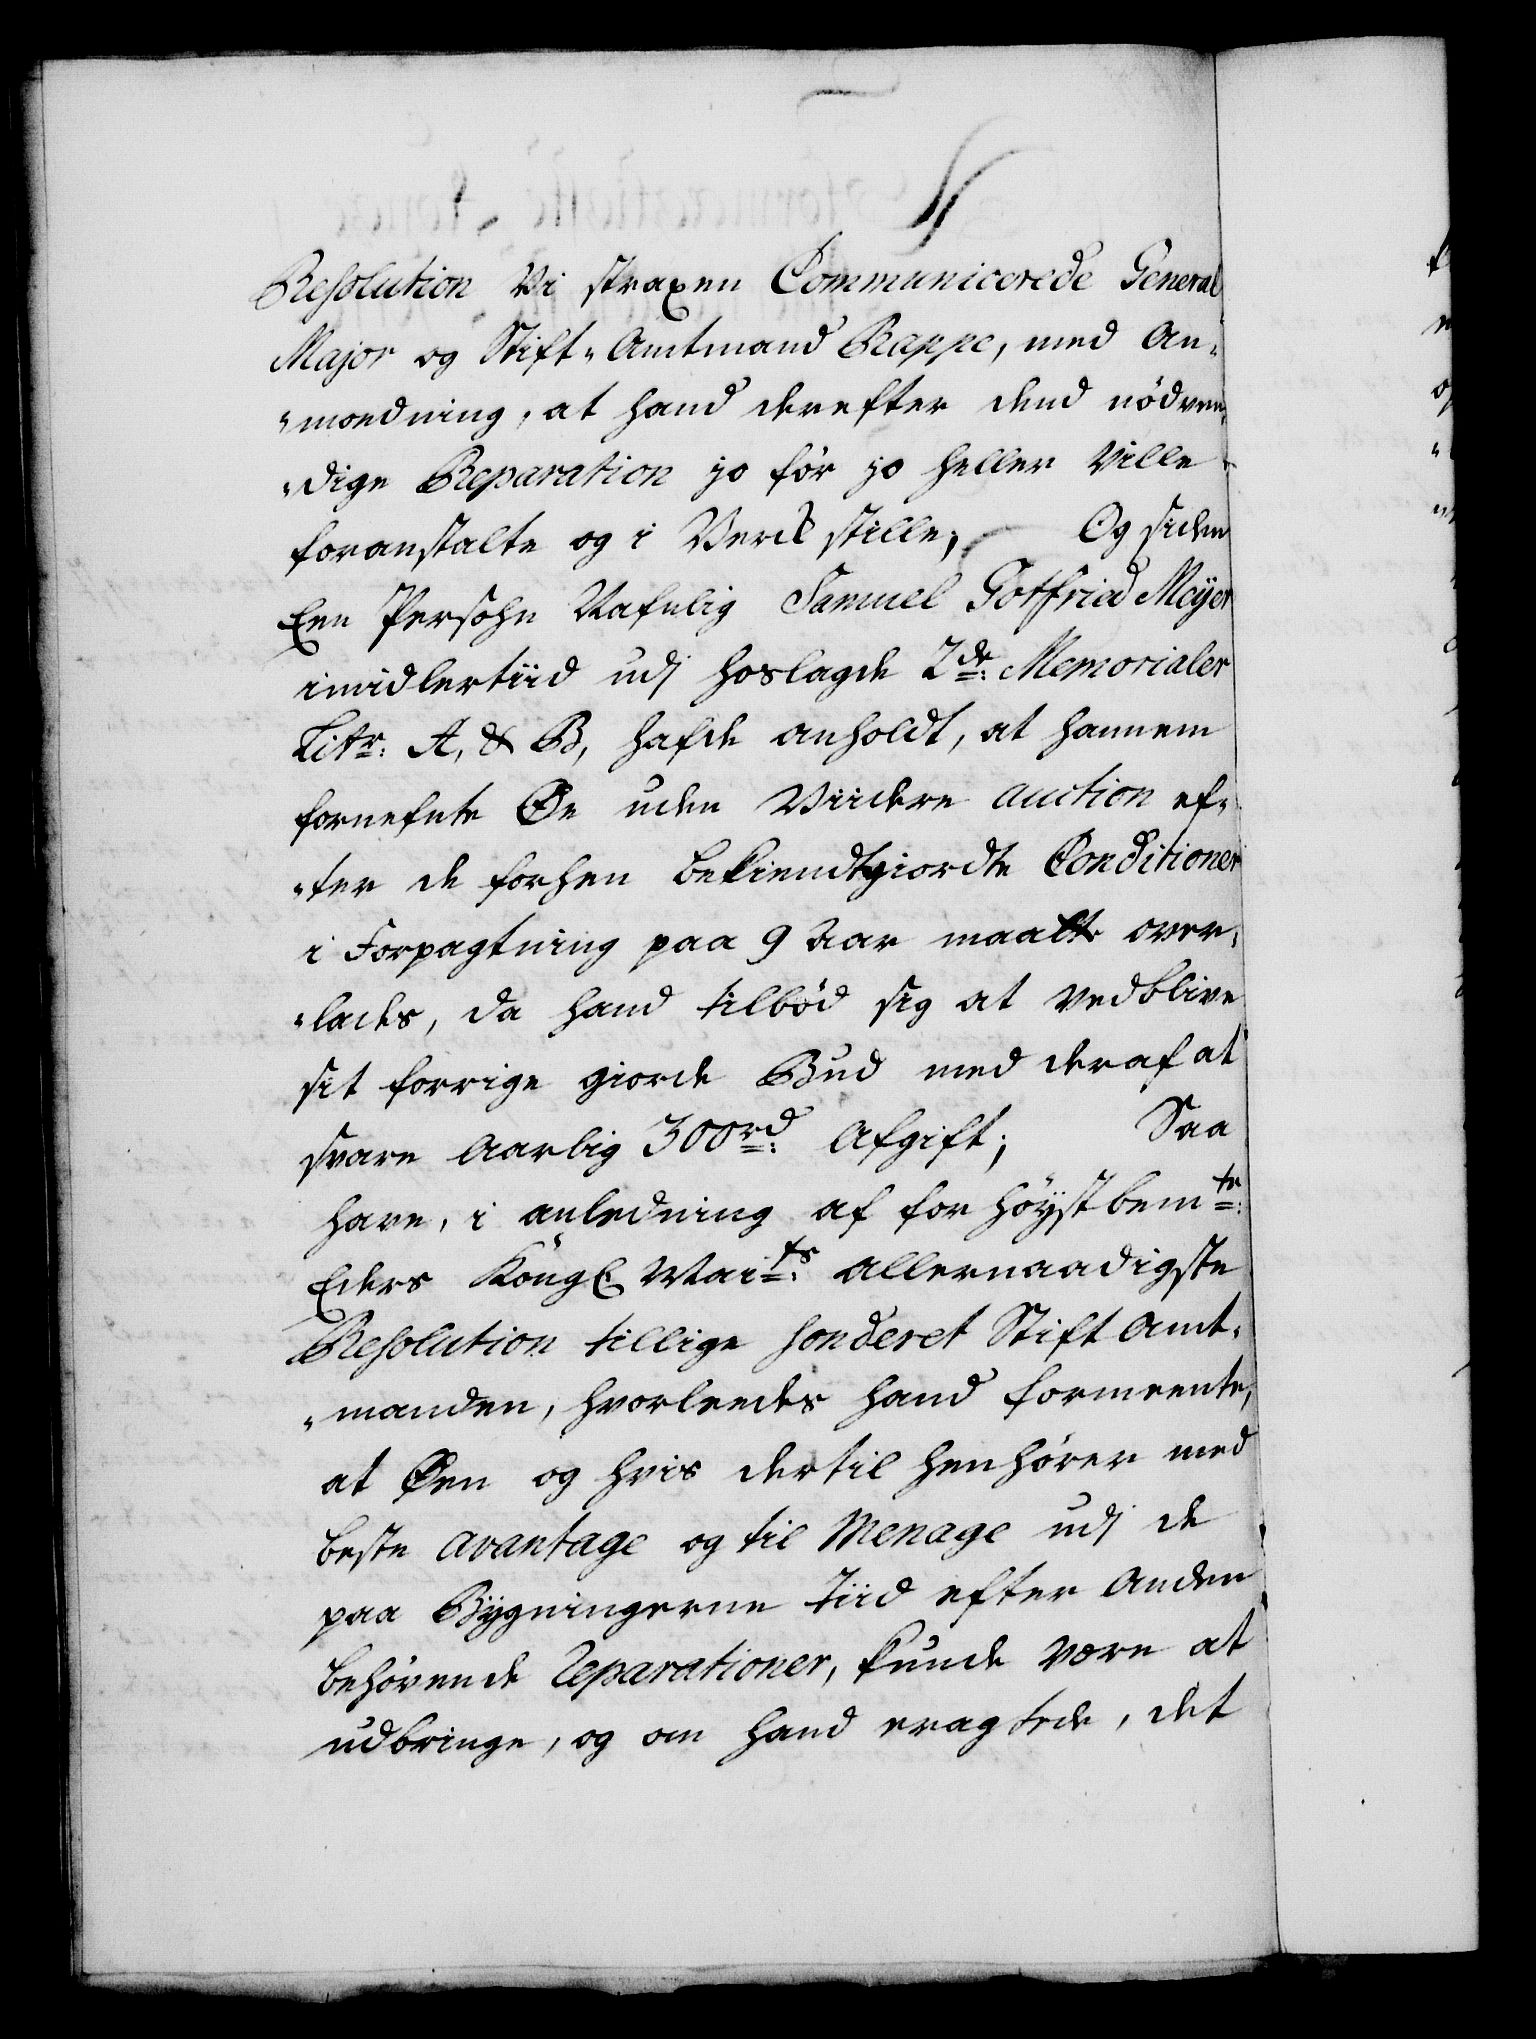 Resolution Vi straxen Communicerede General
Major og Stift-Amtmand Rappe, med An-
-moedning, at hand derefter dend nödven-
-dige Reparation jo för jo heller Ville
foranstalte og i Verck stille; Og siden
Een Persohn Nafnlig Samuel Gotfried Meyer
imidlertiid udj hoslagde 2de: Memorialer
Litr: A, & B, hafde anholdt, at hannem
fornefnte Øe uden Viidere auction ef-
-ter de forhen bekiendtgiordte Conditioner
i Forpagtning paa 9 Aar maatte over-
-lades, da hand tilbød sig at vedblive
sit forrige giorde Bud med deraf at
svare Aarlig 300rd: Afgift; Saa
have, i anledning af for höystbemte:
Eders Kongl Maits: allernaadigste
Resolution tillige honderet Stift Amt-
-manden, hvorleedes hand formeente,
at Øen og hvis dertil henhörer med
beste avantage og til Menage udj de
paa Bygningerne tiid efter anden
behövende Reparationer, kunde være at
udbringe, og om hand eragtede, det